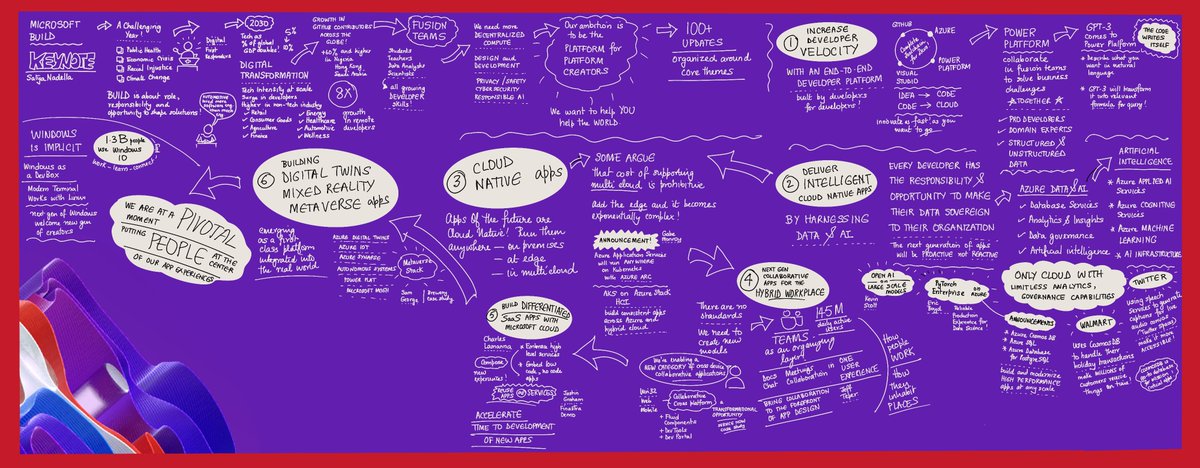 MICROSOFT
BUILD
KEYNOTE
Satya Nadella
A Challenging
Year!
Public Health
Economic Crisis
Racial Injustice
Climate Change
Digital
First
Responders
BUILD is about role,
responsibility and
opportunity to shape solutions!
2030
Tech as
% of global
GDP doubles!
5%
10%
DIGITAL
TRANSFORMATION
Tech Intensity at scale
Surge in developers
Higher in non-tech industry
✓ Retail
✓ Consumer Goods
✓ Agriculture
✓ Finance
✓ Energy
✓ Healthcare
✓ Automotive
✓ Wellness
GROWTH IN
GITHUB CONTRIBUTORS
ACROSS THE
GLOBE!
+60% and higher
in Nigeria
Hong Kong
Saudi Arabia
8X
growth
in remote
developers
FUSION
TEAMS
Students
Teachers
Data Analysts
Scientists
all growing
DEVELOPER
SKILLS!
We need more
DECENTRALIZED
COMPUTE
DESIGN AND
DEVELOPMENT
PRIVACY / SAFETY
CYBER SECURITY
RESPONSIBLE AI
Our ambition is
to be the
PLATFORM for
PLATFORM
CREATORS
We want to help YOU
help the WORLD.
100+
UPDATES
Organized around
core themes
1 INCREASE
DEVELOPER
VELOCITY
WITH AN END-TO-END
DEVELOPER PLATFORM
built by developers
for developers!
GITHUB
AZURE
VISUAL
STUDIO
POWER
PLATFORM
IDEA → CODE
CODE → CLOUD
innovate as fast as you
want to go
POWER
PLATFORM
collaborate
in fusion teams
to solve business
challenges
★ TOGETHER ★
✓ PRO DEVELOPERS
✓ DOMAIN EXPERTS
✓ STRUCTURED &
UNSTRUCTURED
DATA
GPT-3
comes to
Power Platform
★ Describe what you
want in natural
language
★ GPT-3 will transform
it into relevant
formula for query!
THE CODE
WRITES
ITSELF
2 DELIVER
INTELLIGENT
CLOUD NATIVE APPS
BY HARNESSING
DATA & AI
EVERY DEVELOPER HAS
THE RESPONSIBILITY &
OPPORTUNITY TO MAKE
THEIR DATA SOVEREIGN
TO THEIR ORGANIZATION
The next generation of apps
will be PROACTIVE not REACTIVE
AZURE DATA & AI
✓ Database Services
✓ Analytics & Insights
✓ Data governance
✓ Artificial intelligence
ARTIFICIAL
INTELLIGENCE
★ Azure APPLIED AI
SERVICES
★ Azure COGNITIVE
SERVICES
★ Azure MACHINE
LEARNING
★ AI INFRASTRUCTURE
OPEN AI
LARGE SCALE
MODELS
Kevin
Scott
PyTorch
Enterprise on
AZURE
Eric
Boyd
Reliable
Production
Experience for
Data Science!
ONLY CLOUD WITH
LIMITLESS ANALYTICS,
GOVERNANCE CAPABILITIES
ANNOUNCEMENTS
★ Azure Cosmos DB
★ Azure SQL
★ Azure Database
for PostgreSQL
build and modernize
HIGH PERFORMANCE
apps at any scale
WALMART
uses Cosmos DB
to handle their
holiday transactions
make millions of
customers receive
things on time
TWITTER
using speech
services to generate
captions for live
audio convos
(Twitter Spaces)
make it more
ACCESSIBLE!
3 CLOUD
NATIVE apps
Apps of the future are
Cloud Native! Run them
anywhere — on premises
— at edge
— in multicloud
SOME ARGUE
that cost of supporting
multi cloud is prohibitive
Add the edge and it becomes
exponentially complex!
ANNOUNCEMENT!
Gabe
Monroy
Azure Application Services
will run ANYWHERE
on Kubernetes
with AZURE ARC
AKS on Azure Stack
HCI
build consistent apps
across Azure and
hybrid cloud
4 NEXT GEN
COLLABORATIVE
APPS FOR THE
HYBRID WORKPLACE
There are no
standards
We need to
create new
models
TEAMS
as an organizing
layer
145M
daily active
users
Docs Meetings in ONE
Chat Collaboration USER
EXPERIENCE
BRING COLLABORATION
TO THE FOREFRONT
OF APP DESIGN
Jeff
Teper
How
people
WORK
How
They
inhabit
PLACES
We're enabling a
NEW CATEGORY of cross device
collaborative applications
Win32
Web
Mobile
Collaborative
Cross platform
+ Fluid
Components
+ DevTools
+ Dev Portal
TRANSFORMATIONAL
OPPORTUNITY
SERVICE NOW
case study
5 BUILD DIFFERENTIATED
SaaS APPS WITH
MICROSOFT CLOUD
Charles
Lamanna
Compose
new
experiences!
★ Embrace high
level services
★ Embed low
code, no code
apps
REUSE
APPS AND SERVICES
Justin
Graham
Finastra
Demo
ACCELERATE
TIME TO DEVELOPMENT
OF NEW APPS
6 BUILDING
DIGITAL TWINS
MIXED REALITY
METAVERSE apps
Emerging
as a first
class platform
integrated into
the real world
AZURE DIGITAL TWINS
AZURE IOT
AZURE SYNAPSE
AUTONOMOUS SYSTEMS
POWER PLAT
MICROSOFT MESH
Metaverse
Stack
Sam
George
Brewery
case study
WINDOWS
IS IMPLICIT
Windows as
a DevBox
Modern Terminal
Works with Linux
next gen of Windows
welcome new gen
of creators
1.3B people
use Windows
10
work - learn - connect
WE ARE AT A PIVOTAL
MOMENT
PUTTING PEOPLE AT THE
CENTER
OF OUR APP EXPERIENCES